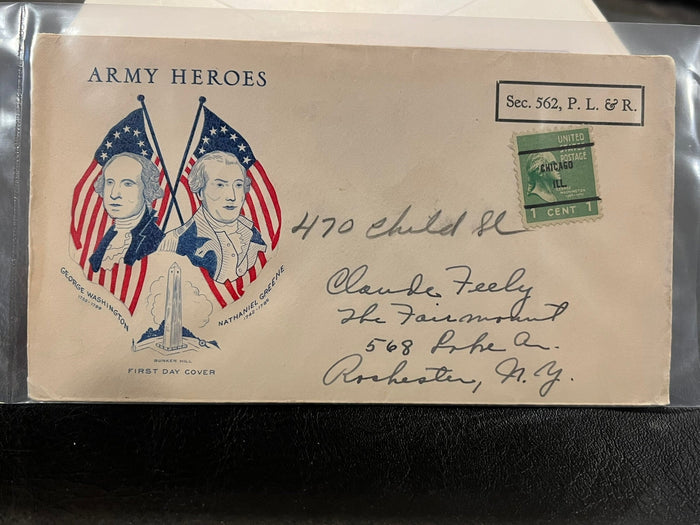 ARMY HEROES
Sec. 562, P. L. & R.
UNITED
STATES
POSTAGE
CHICAGO
ILL.
WASHINGTON
1 CENT 1
470 Child St
Claude Feely
The Fairmount
568 Lake Av.
Rochester, N.Y.
GEORGE WASHINGTON
1732-1799
NATHANIEL GREENE
1742-1786
BUNKER HILL
FIRST DAY COVER